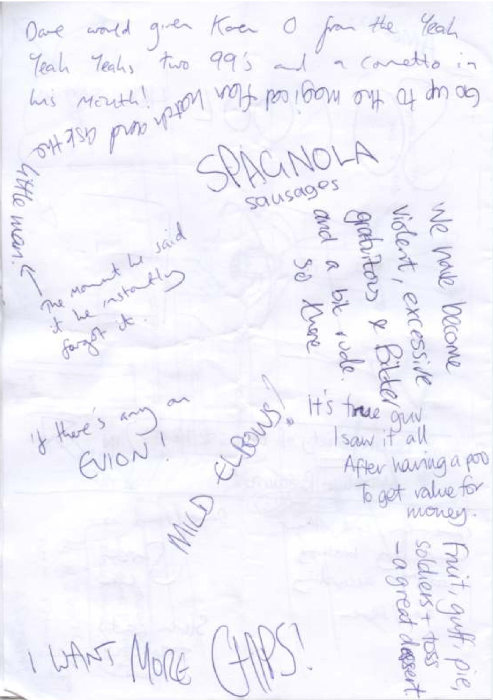 Dave would given Karen O from the Yeah
Yeah Yeahs, two 99's and a cornetto in
his mouth!
Go up to the magical flan hatch and ask the
little man!
SPAGNOLA
sausages
The moment he said
it he instantly
forgot it.
We have become
violent, excessive
gratuitous &
and a bit rude.
So there
if there's any on
EVION!
MILD ELBOWS!
It's true guv
I saw it all
After having a poo
To get value for
money.
Fruit, guff, pie
soldiers + toss
- a great dessert
I WANT MORE CHAPS!